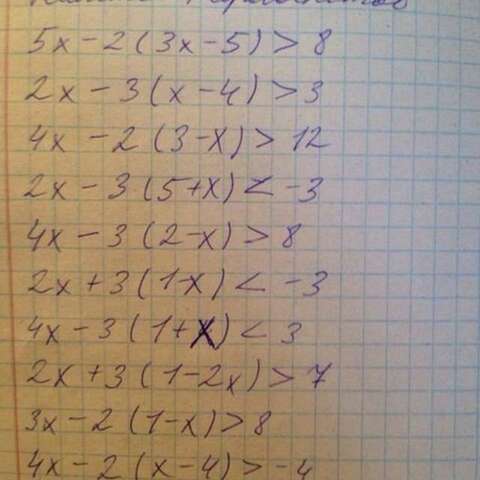 5x - 2(3x - 5) > 8
2x - 3(x - 4) > 3
4x - 2(3 - x) > 12
2x - 3(5 + x) < -3
4x - 3(2 - x) > 8
2x + 3(1 - x) < -3
4x - 3(1 + x) < 3
2x + 3(1 - 2x) > 7
3x - 2(1 - x) > 8
4x - 2(x - 4) > -4